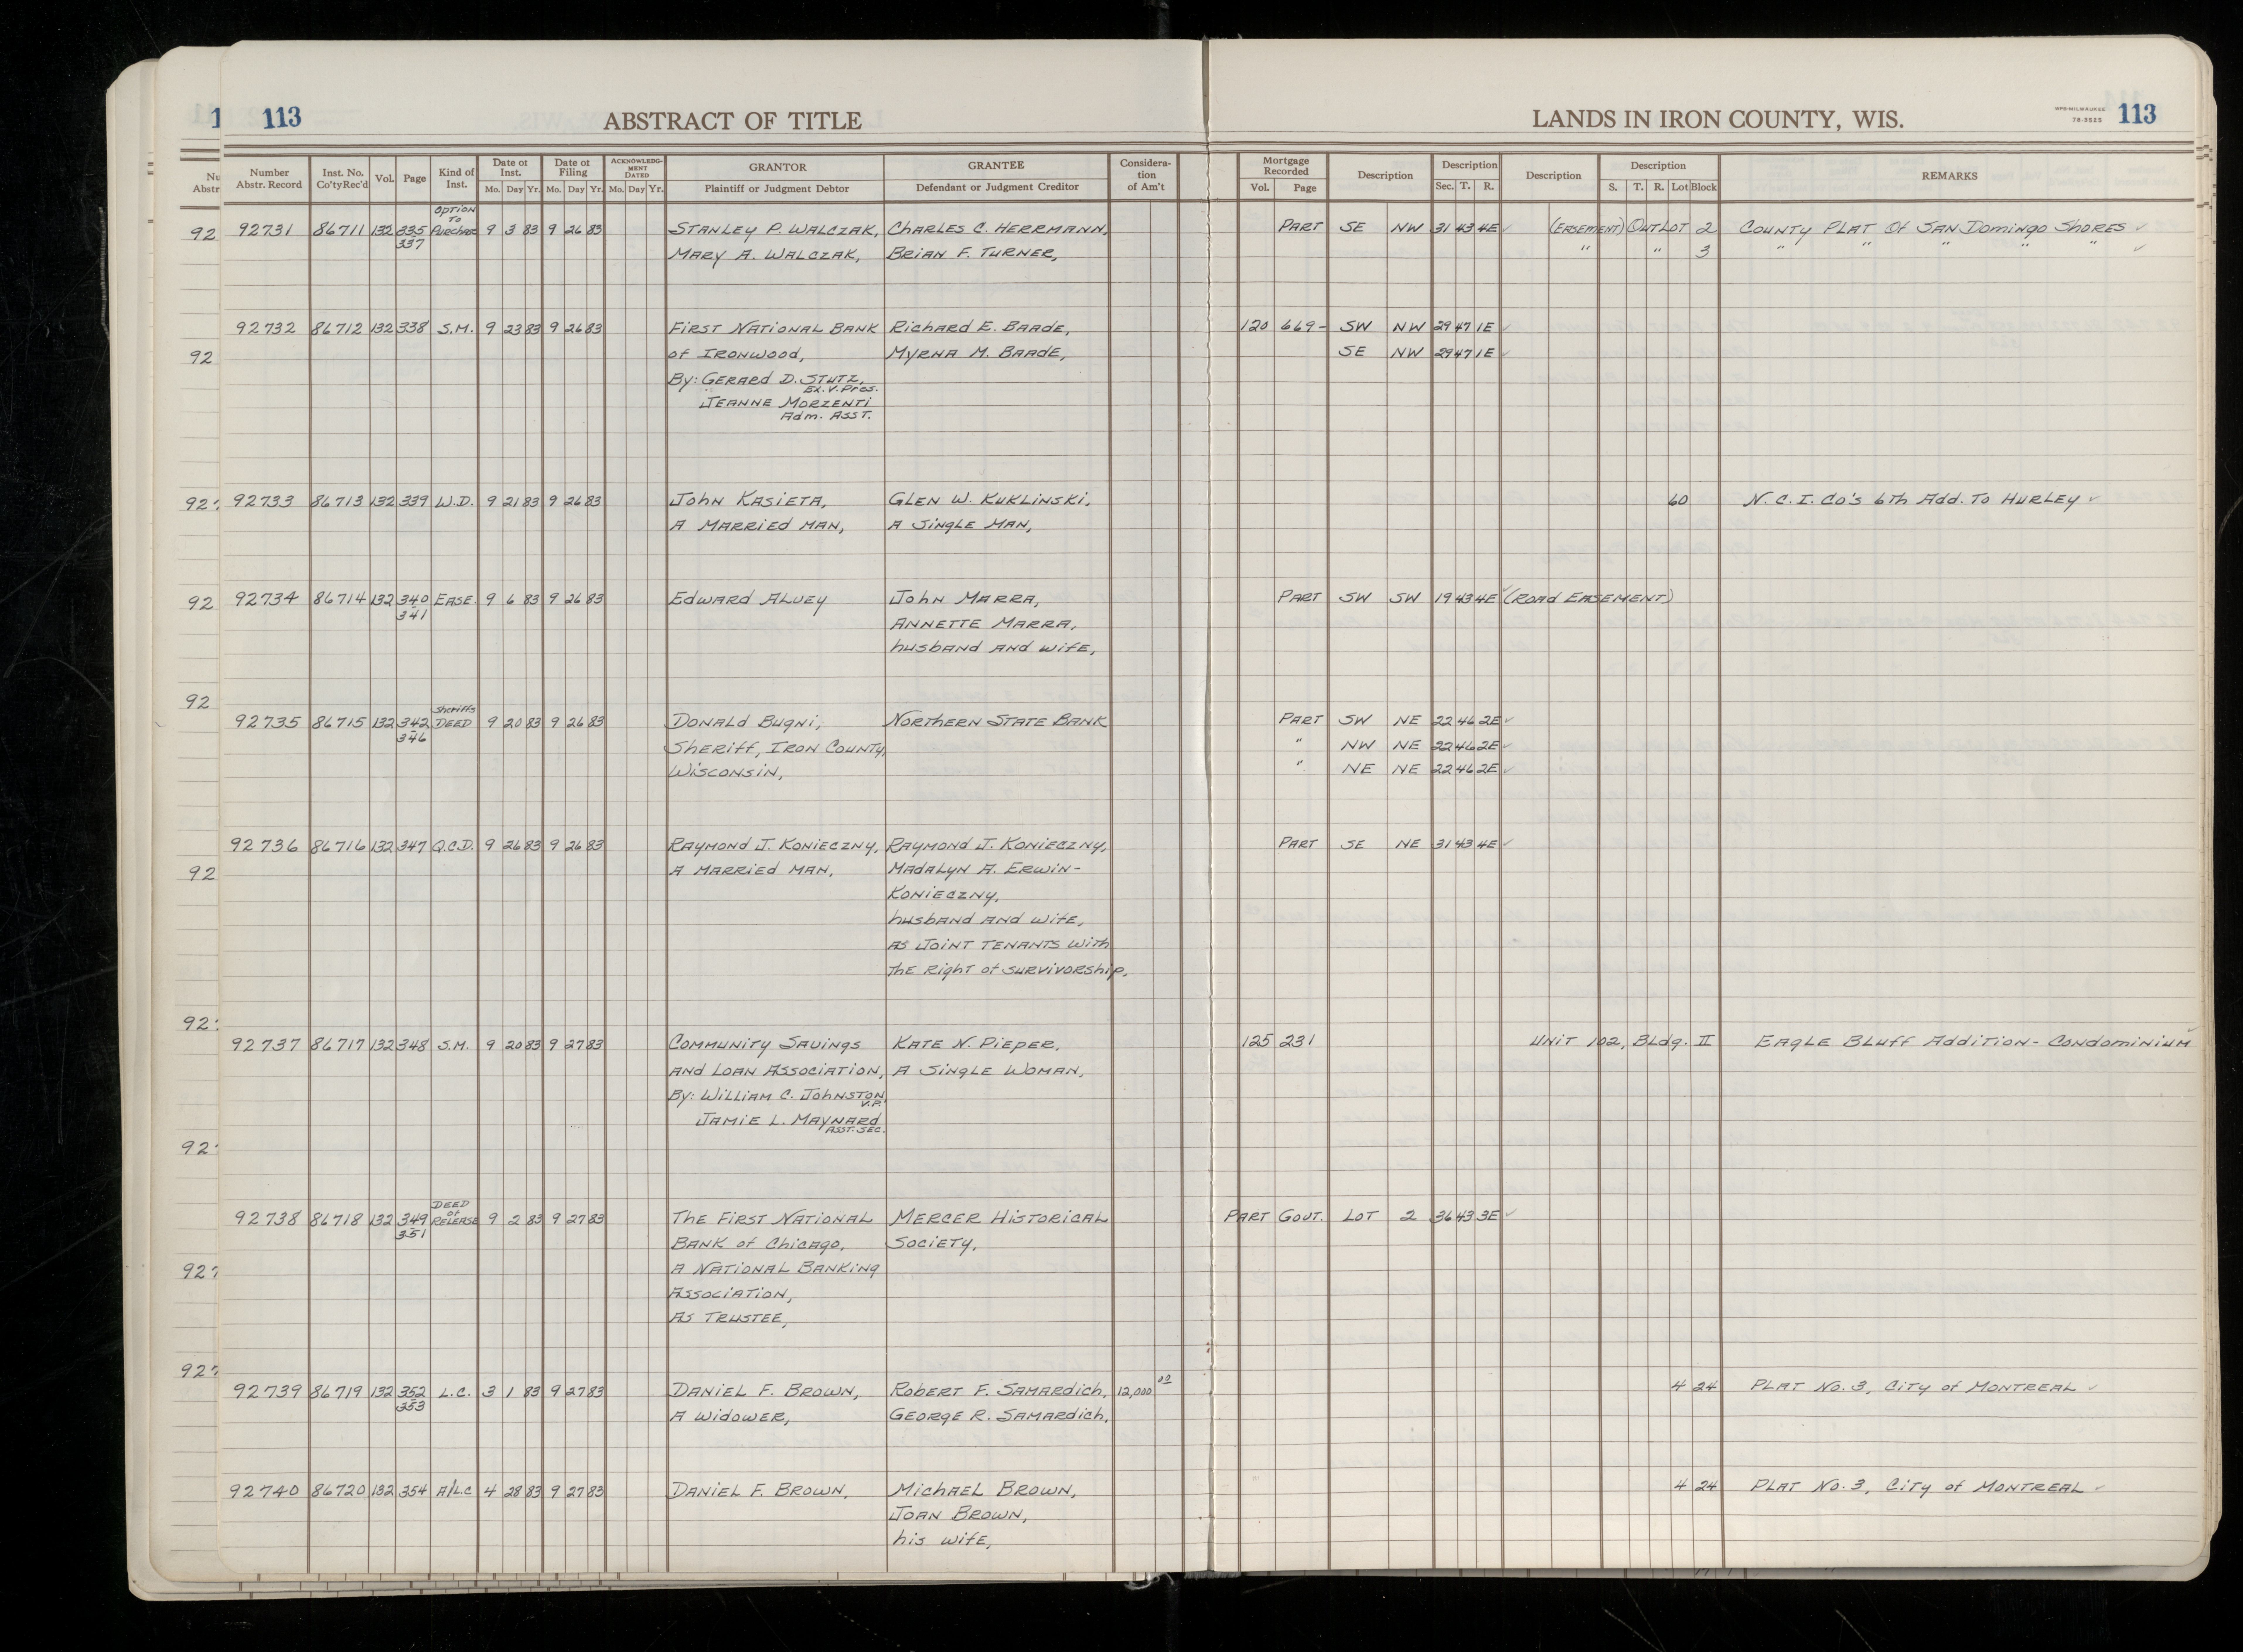 113 ABSTRACT OF TITLE LANDS IN IRON COUNTY, WIS. WPB-MILWAUKEE 78-3525 113
Number Abstr. Record Inst. No. Co'ty Rec'd Vol. Page Kind of Inst. Date of Inst. Mo. Day Yr. Date of Filing Mo. Day Yr. ACKNOWLEDGMENT DATED Mo. Day Yr. GRANTOR Plaintiff or Judgment Debtor GRANTEE Defendant or Judgment Creditor Consideration of Am't Mortgage Recorded Vol. Page Description Description Sec. T. R. Description Description S. T. R. Lot Block REMARKS
92731 86711 132 335 337 OPTION TO PURCHASE 9 3 83 9 26 83 STANLEY P. WALCZAK, CHARLES C. HERRMANN, PART SE NW 31 43 4E (EASEMENT) OUTLOT 2 COUNTY PLAT Of SAN DOMINGO SHORES
MARY A. WALCZAK, BRIAN F. TURNER, " " 3 " " " " "
92732 86712 132 338 S.M. 9 23 83 9 26 83 FIRST NATIONAL BANK RICHARD E. BAADE, 120 669- SW NW 29 47 1E
of IRONWOOD, MYRNA M. BAADE, SE NW 29 47 1E
By: GERARD D. STUTZ, EX. V. Pres.
JEANNE MORZENTI Adm. ASST.
92733 86713 132 339 W.D. 9 21 83 9 26 83 JOHN KASIETA, GLEN W. KUKLINSKI, 60 N.C.I. CO'S 6th Add. TO HURLEY
A MARRIED MAN, A SINGLE MAN,
92734 86714 132 340 341 EASE. 9 6 83 9 26 83 EDWARD ALVEY JOHN MARRA, PART SW SW 19 43 4E (ROAD EASEMENT)
ANNETTE MARRA,
husband and wife,
92735 86715 132 342 346 Sheriffs DEED 9 20 83 9 26 83 DONALD BUGNI, NORTHERN STATE BANK PART SW NE 22 46 2E
SHERIFF, IRON COUNTY, " NW NE 22 46 2E
WISCONSIN, " NE NE 22 46 2E
92736 86716 132 347 Q.C.D. 9 26 83 9 26 83 RAYMOND J. KONIECZNY, RAYMOND J. KONIECZNY, PART SE NE 31 43 4E
A MARRIED MAN, MADALYN A. ERWIN-
KONIECZNY,
husband and wife,
AS JOINT TENANTS WITH
THE RIGHT of SURVIVORSHIP.
92737 86717 132 348 S.M. 9 20 83 9 27 83 COMMUNITY SAVINGS KATE N. PIEPER, 125 231 UNIT 102, BLDG. II EAGLE BLUFF ADDITION - CONDOMINIUM
AND LOAN ASSOCIATION, A SINGLE WOMAN,
By: WILLIAM C. JOHNSTON, V.P.
JAMIE L. MAYNARD ASST. SEC.
92738 86718 132 349 351 DEED of RELEASE 9 2 83 9 27 83 THE FIRST NATIONAL MERCER HISTORICAL PART GOVT. LOT 2 36 43 3E
BANK of CHICAGO, SOCIETY,
A NATIONAL BANKING
ASSOCIATION,
AS TRUSTEE,
92739 86719 132 352 353 L.C. 3 1 83 9 27 83 DANIEL F. BROWN, ROBERT F. SAMARDICH, 12,000 4 24 PLAT NO. 3, CITY of MONTREAL
A WIDOWER, GEORGE R. SAMARDICH,
92740 86720 132 354 A/L.C 4 28 83 9 27 83 DANIEL F. BROWN, MICHAEL BROWN, 4 24 PLAT NO. 3, CITY of MONTREAL
JOAN BROWN,
his wife,